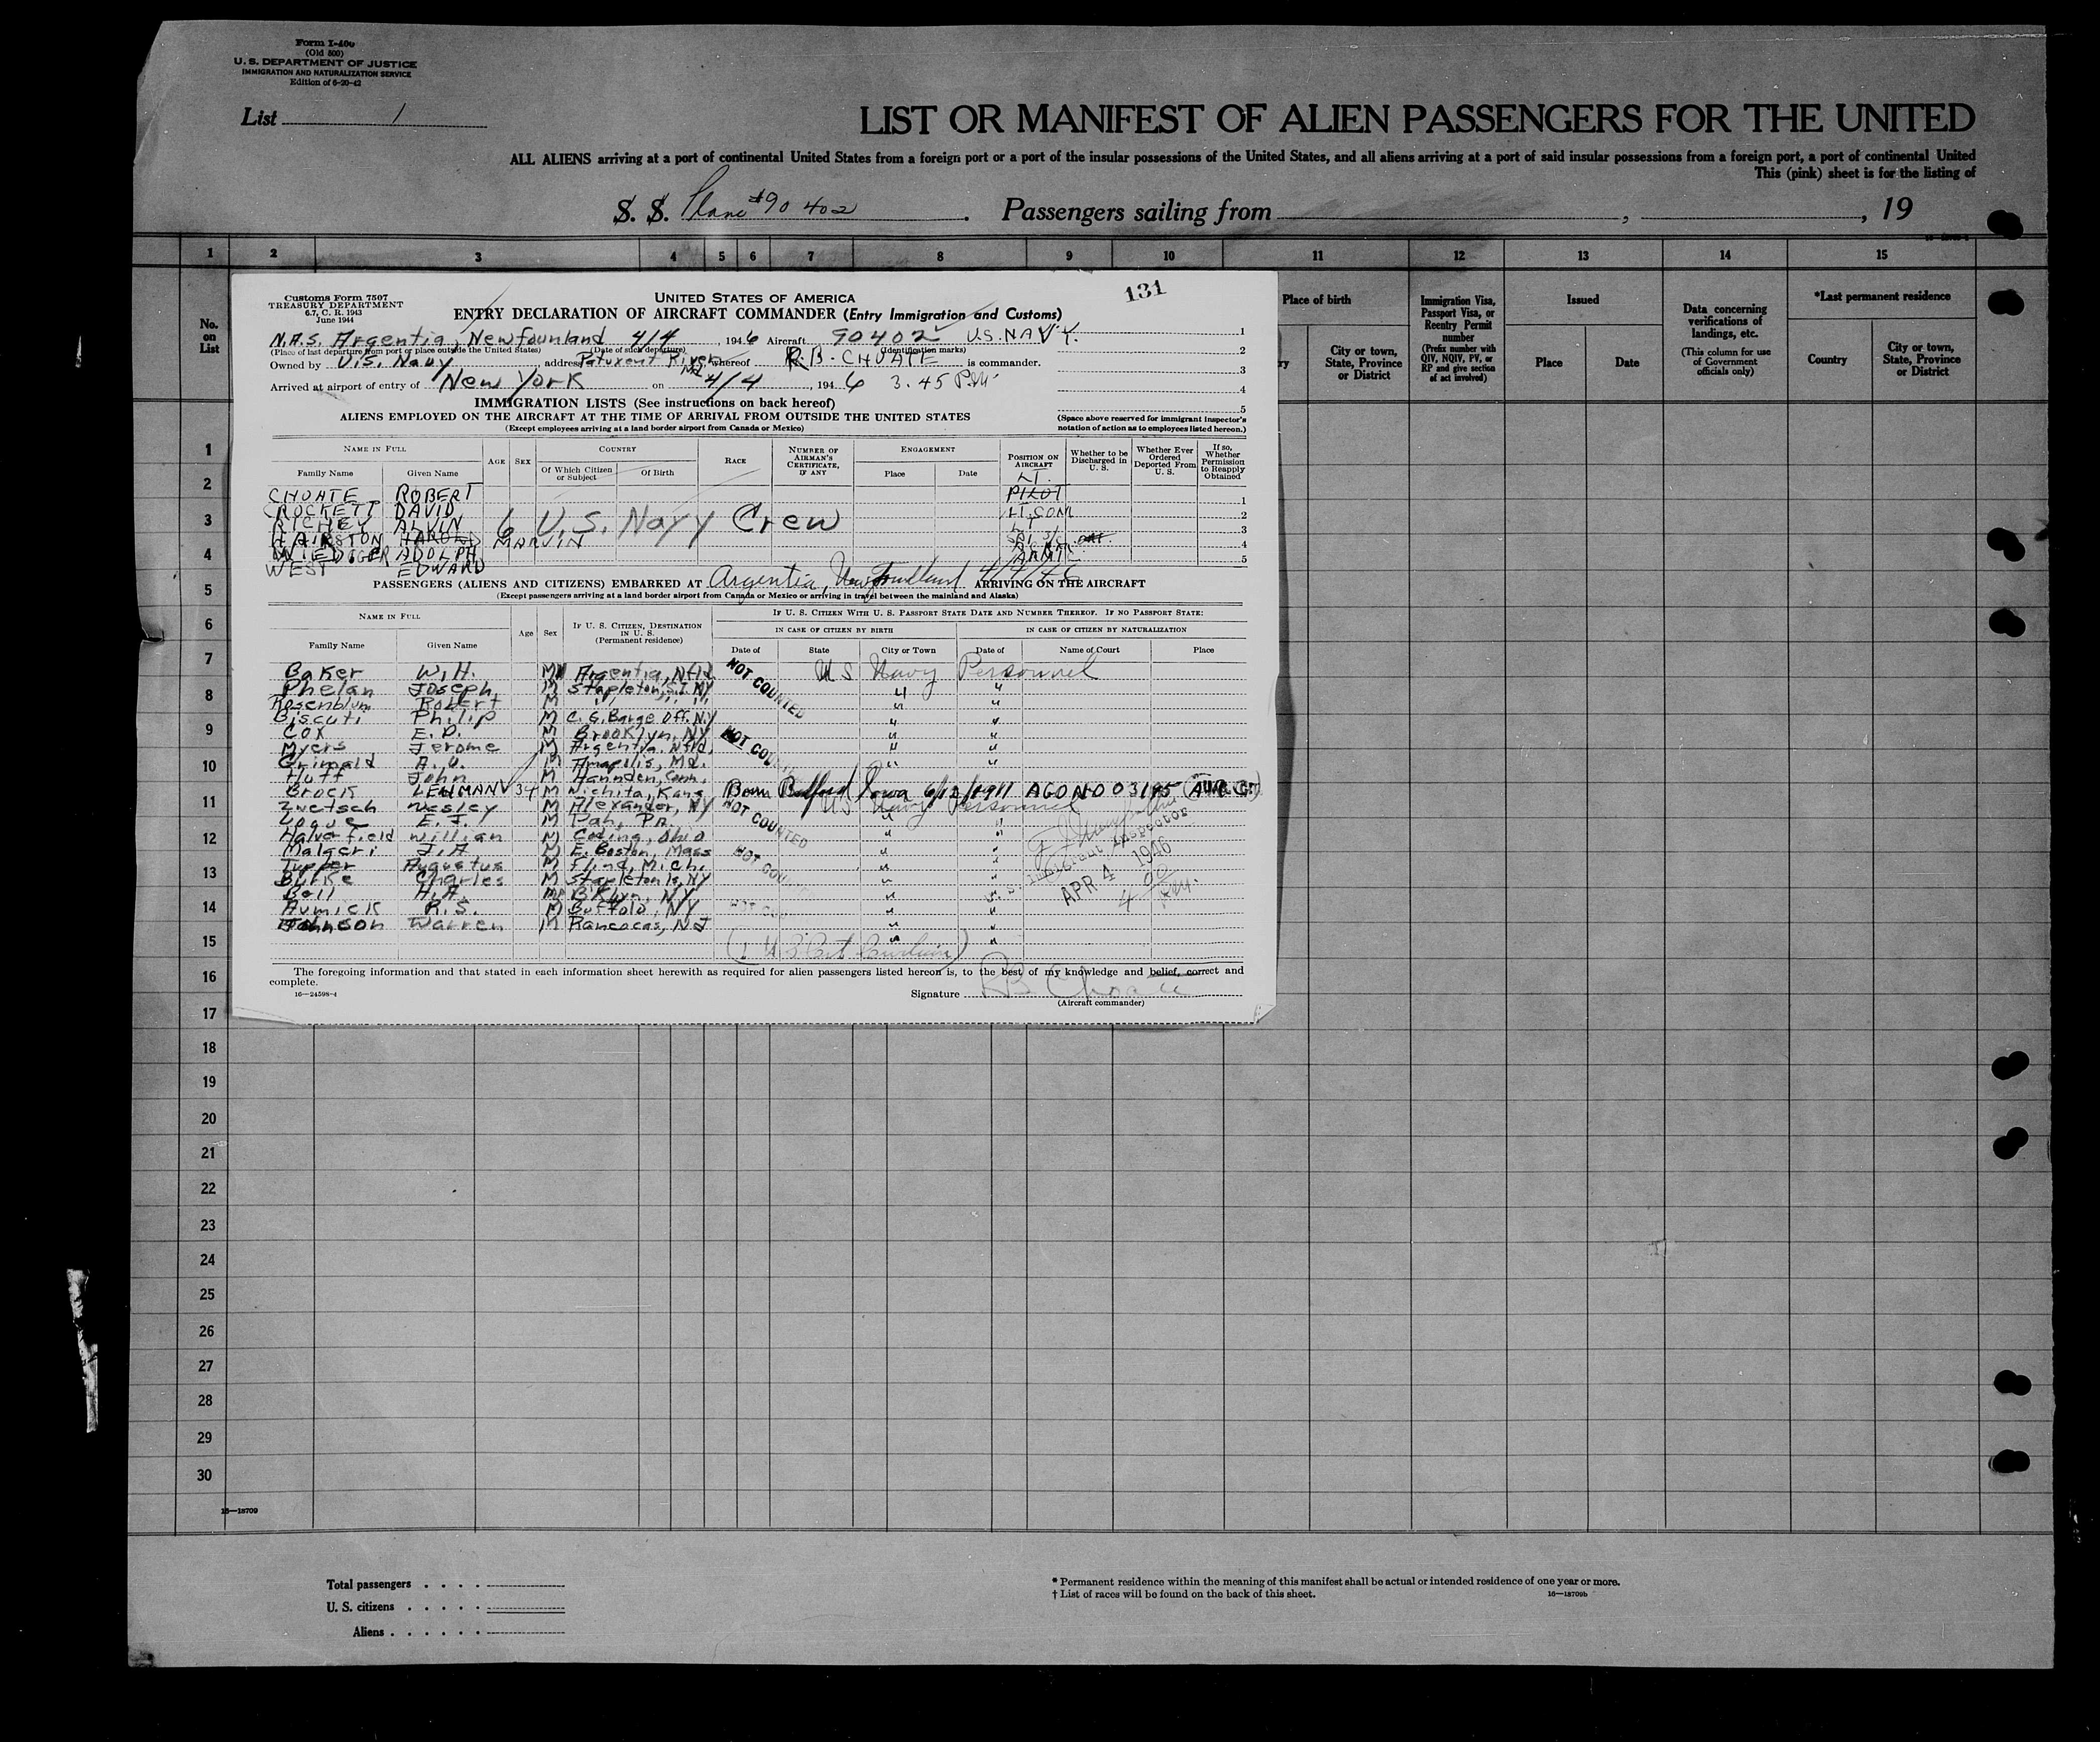 Form I-400
(Old 500)
U. S. DEPARTMENT OF JUSTICE
IMMIGRATION AND NATURALIZATION SERVICE
Edition of 6-20-42
List 1
LIST OR MANIFEST OF ALIEN PASSENGERS FOR THE UNITED
ALL ALIENS arriving at a port of continental United States from a foreign port or a port of the insular possessions of the United States, and all aliens arriving at a port of said insular possessions from a foreign port, a port of continental United
This (pink) sheet is for the listing of
S. S. Plane #90402. Passengers sailing from , , 19
1 2 3 4 5 6 7 8 9 10 11 12 13 14 15
No. on List
Place of birth
City or town, State, Province or District
Immigration Visa, Passport Visa, or Reentry Permit number
(Prefix number with QIV, NQIV, PV, or RP and give section of act involved)
Issued
Place Date
Data concerning verifications of landings, etc.
(This column for use of Government officials only)
*Last permanent residence
Country City or town, State, Province or District
Customs Form 7507
TREASURY DEPARTMENT
6.7, C. R. 1943
June 1944
UNITED STATES OF AMERICA
131
ENTRY DECLARATION OF AIRCRAFT COMMANDER (Entry Immigration and Customs)
N.A.S. Argentia, Newfounland 4/4, 1946 Aircraft 90402 U.S. NAVY.
(Place of last departure from port or place outside the United States) (Date of such departure) (Identification marks)
Owned by U.S. Navy address Patuxent River Md. whereof R. B. CHOATE is commander.
Arrived at airport of entry of New York on 4/4, 1946 3.45 P.M.
IMMIGRATION LISTS (See instructions on back hereof)
ALIENS EMPLOYED ON THE AIRCRAFT AT THE TIME OF ARRIVAL FROM OUTSIDE THE UNITED STATES
(Except employees arriving at a land border airport from Canada or Mexico)
1
2
3
4
5
(Space above reserved for immigrant inspector's notation of action as to employees listed hereon.)
NAME IN FULL AGE SEX COUNTRY RACE NUMBER OF AIRMAN'S CERTIFICATE, IF ANY ENGAGEMENT POSITION ON AIRCRAFT Whether to be Discharged in U. S. Whether Ever Ordered Deported From U. S. If so, Whether Permission to Reapply Obtained
Family Name Given Name Of Which Citizen or Subject Of Birth Place Date
CHOATE ROBERT LT. PILOT 1
CROCKETT DAVID LT. COM 2
RICHEY ALVIN LT 3
HAIRSTON HAROLD MARVIN 4
WIEDIGER ADOLPH 5
WEST EDWARD ARMTC
6 U.S. Navy Crew
PASSENGERS (ALIENS AND CITIZENS) EMBARKED AT Argentia, Newfoundland 4/4/46 ARRIVING ON THE AIRCRAFT
(Except passengers arriving at a land border airport from Canada or Mexico or arriving in travel between the mainland and Alaska)
NAME IN FULL Age Sex IF U. S. CITIZEN, DESTINATION IN U. S. (Permanent residence) IF U. S. CITIZEN WITH U. S. PASSPORT STATE DATE AND NUMBER THEREOF. IF NO PASSPORT STATE:
IN CASE OF CITIZEN BY BIRTH IN CASE OF CITIZEN BY NATURALIZATION
Family Name Given Name Date of State City or Town Date of Name of Court Place
Baker W.H. M Argentia, Nfld. NOT COUNTED US Navy Personnel
Phelan Joseph M Stapleton, S.I. NY " "
Rosenblum Robert M " " " " "
Biscuti Philip M C. G. Barge Off. N.Y " "
Cox E. D. M Brooklyn, NY " "
Myers Jerome M Argentia. Nfld. NOT COUNTED " "
Grimald A. U. M Anapolis, Md. " "
Huff John M Hamnden, Conn.
Brock LEHMAN V 34 M Wichita, Kans Born Bedford Iowa 6/12/1911 AGO NO 03195
Zwetsch Wesley M Alexander, NY NOT COUNTED US Navy Personnel
Logue E. J. M Pah, Pa. " "
Halverfield Willian M Coding, Ohio " "
Malgeri J. A M E. Boston, Mass NOT COUNTED " "
Tupper Augustus M Flind, Mich. " "
Burke Charles M Stapleton Is, NY " "
Bell H. A. M Bklyn, NY " "
Aumick R. S. M Buffalo, NY " "
Johnson Warren M Rancocas, NJ " "
U. S. Immigrant Inspector
APR 4 1946
4 00 P.M.
(1 U S Cit Civilian)
The foregoing information and that stated in each information sheet herewith as required for alien passengers listed hereon is, to the best of my knowledge and belief, correct and
complete.
16—24598-4
Signature RB Choate
(Aircraft commander)
1
2
3
4
5
6
7
8
9
10
11
12
13
14
15
16
17
18
19
20
21
22
23
24
25
26
27
28
29
30
16—18709
Total passengers . . . .
U. S. citizens . . . . .
Aliens . . . . . .
* Permanent residence within the meaning of this manifest shall be actual or intended residence of one year or more.
† List of races will be found on the back of this sheet.
16—18709b